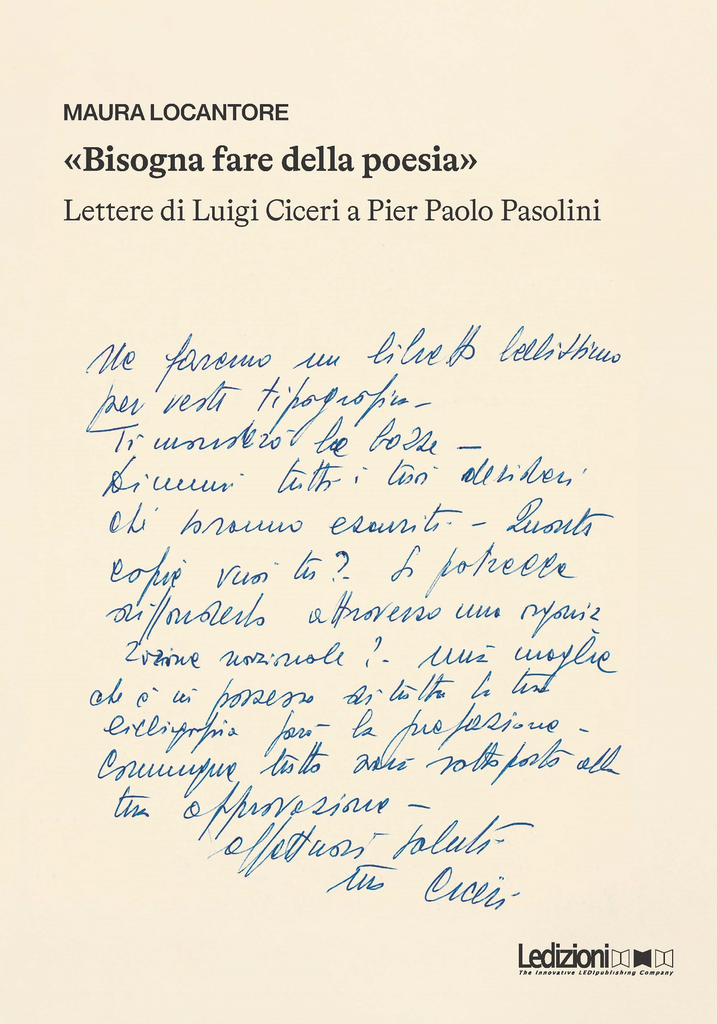 MAURA LOCANTORE
«Bisogna fare della poesia»
Lettere di Luigi Ciceri a Pier Paolo Pasolini
Ne faremo un libretto bellissimo
per veste tipografica -
Ti manderò le bozze -
Dimmi tutti i tuoi desideri
che saranno esauriti - Quante
copie vuoi tu? Si potrebbe
diffonderlo attraverso una organiz
zazione nazionale? - Mia moglie
che è in possesso di tutta la tua
bibliografia farà la prefazione -
Comunque tutto sarà sottoposto alla
tua approvazione -
affettuosi saluti
tuo Ciceri
Ledizioni
The Innovative LEDIpublishing Company